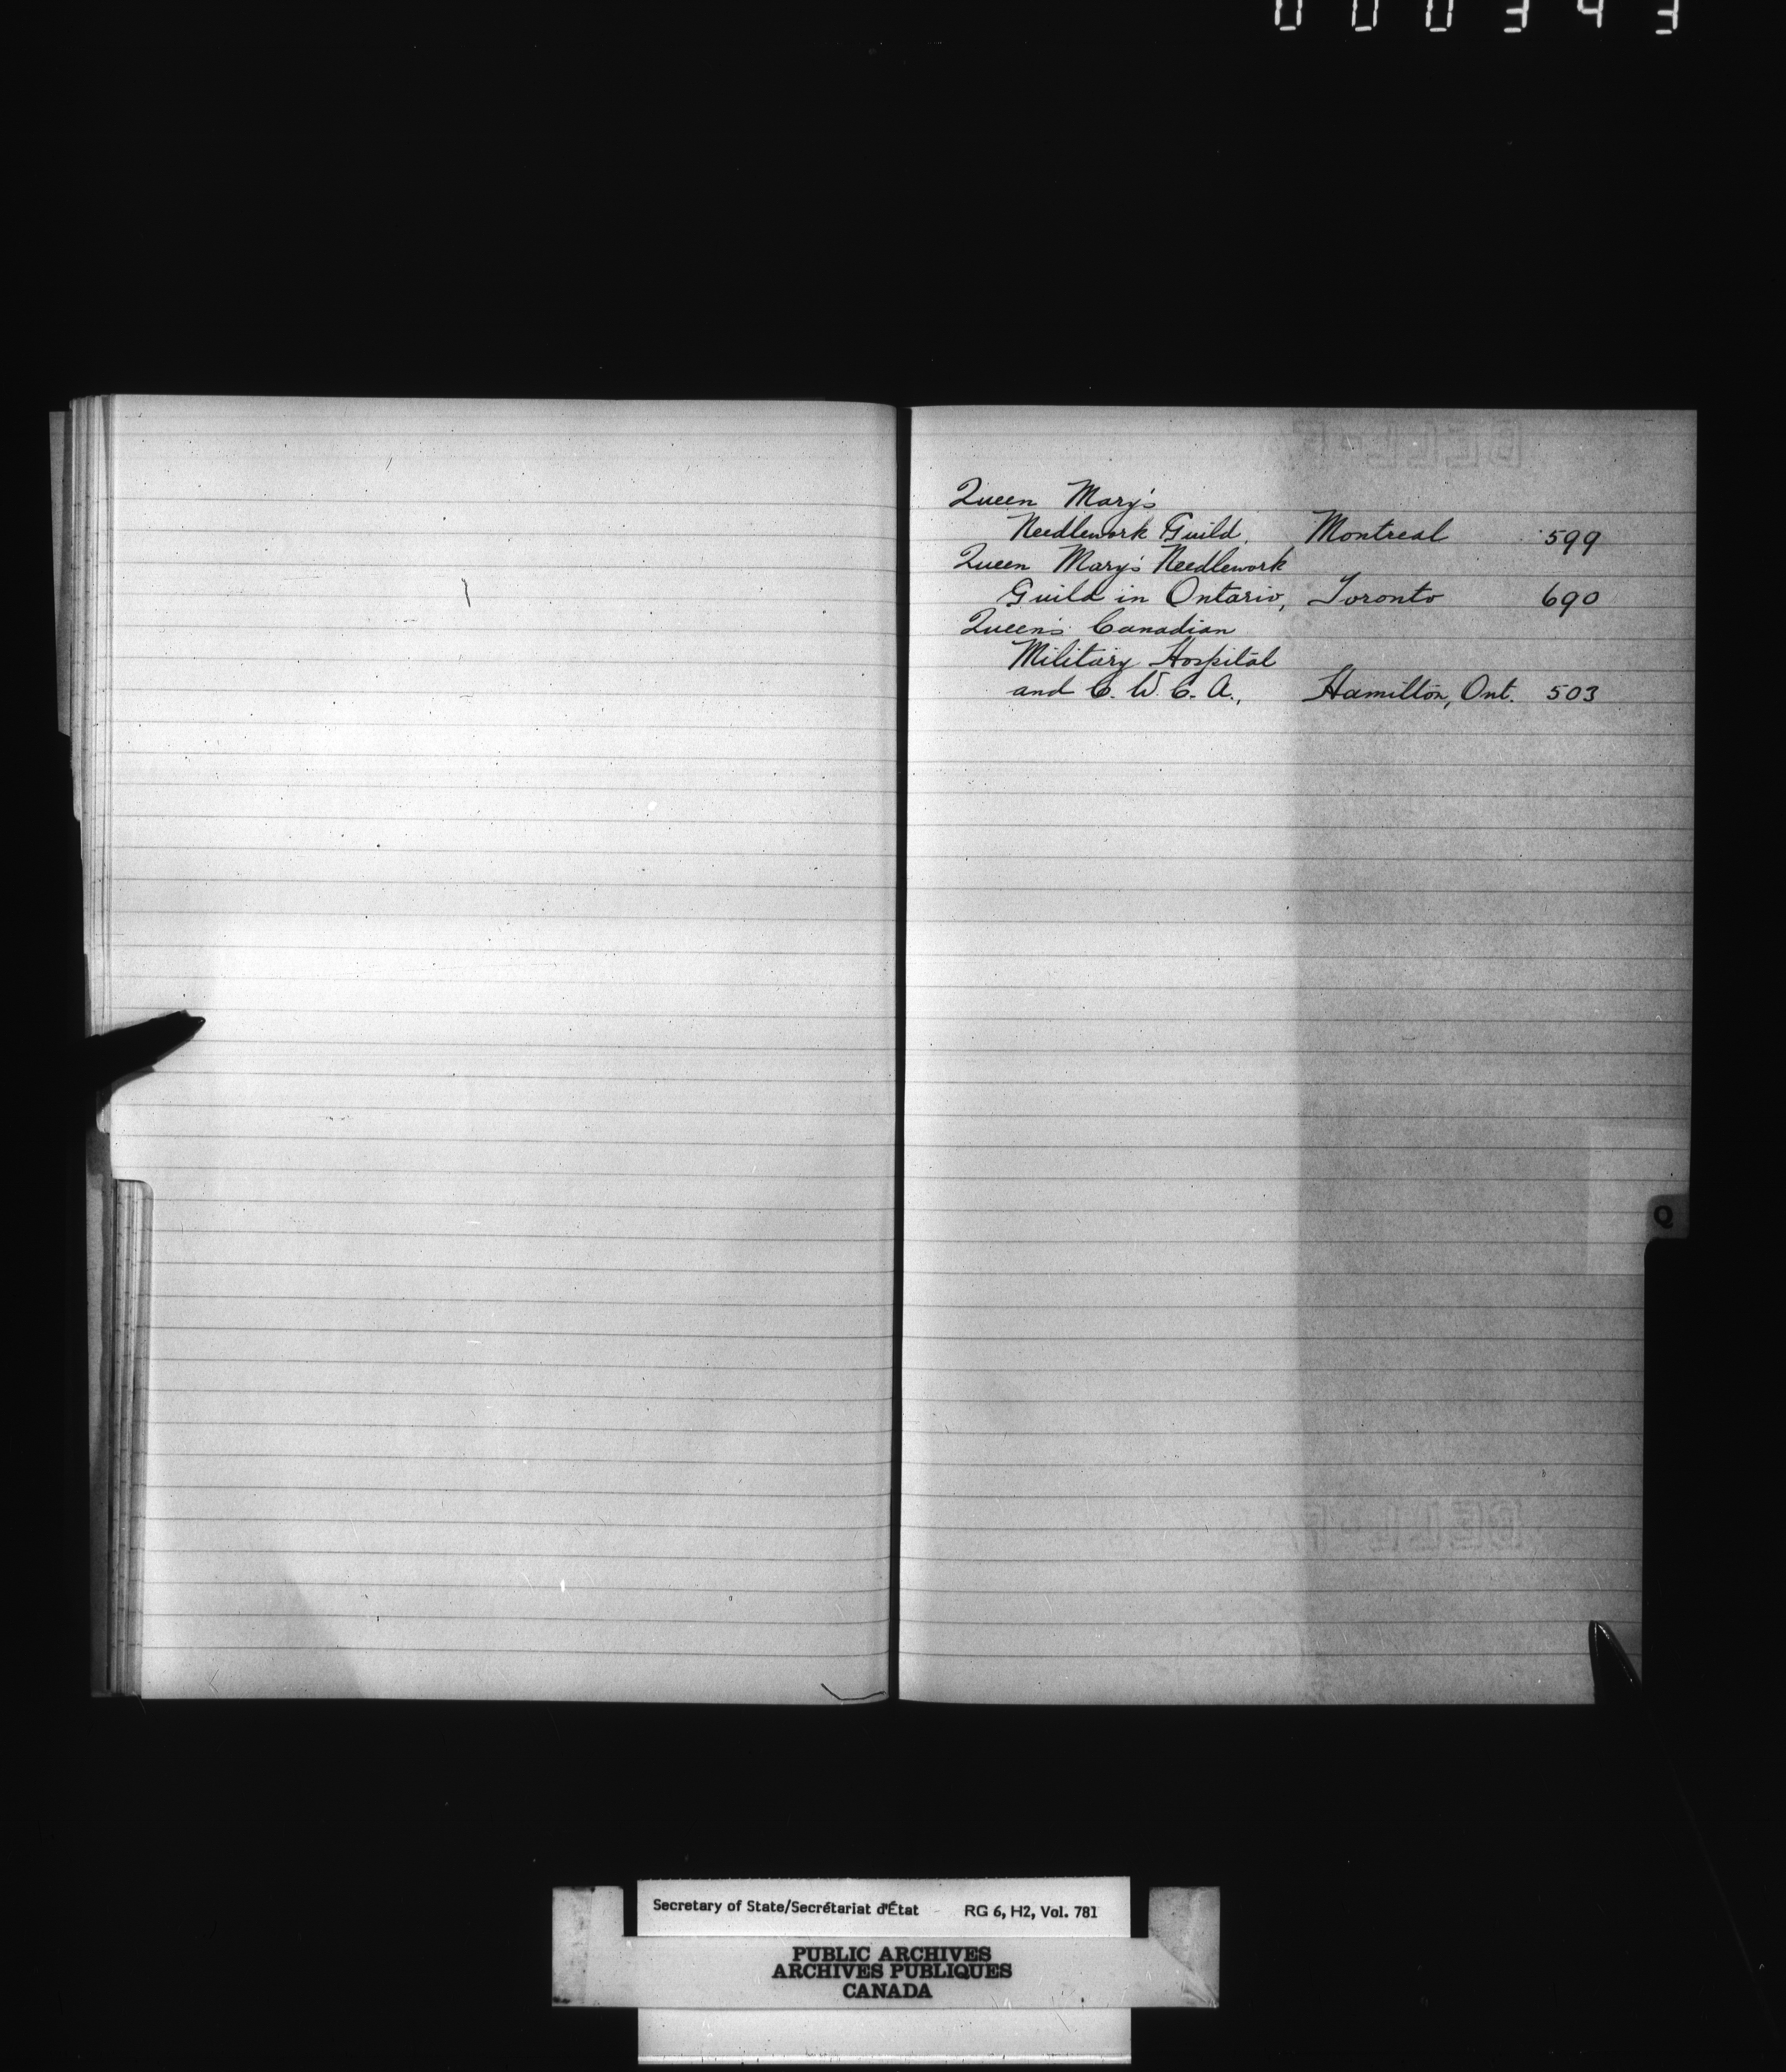 000343
Queen Mary's
Needlework Guild, Montreal 599
Queen Mary's Needlework
Guild in Ontario, Toronto 690
Queen's Canadian
Military Hospital
and C. W. C. A., Hamilton, Ont. 503
Q
Secretary of State/Secrétariat d'État - RG 6, H2, Vol. 781
PUBLIC ARCHIVES
ARCHIVES PUBLIQUES
CANADA